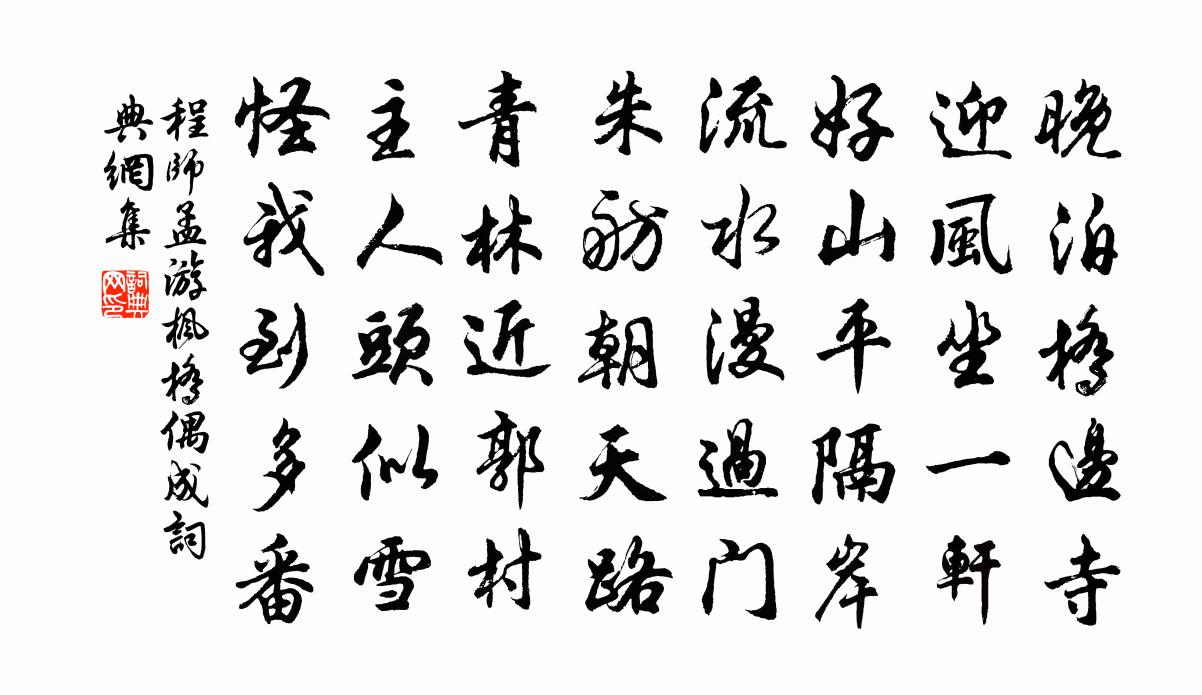 晚泊橋邊寺
迎風坐一軒
好山平隔岸
流水漫過门
朱舫朝天路
青林近郭村
主人頭似雪
怪我到多番
程師孟游楓橋偶成詞
典網集
詞典
网印